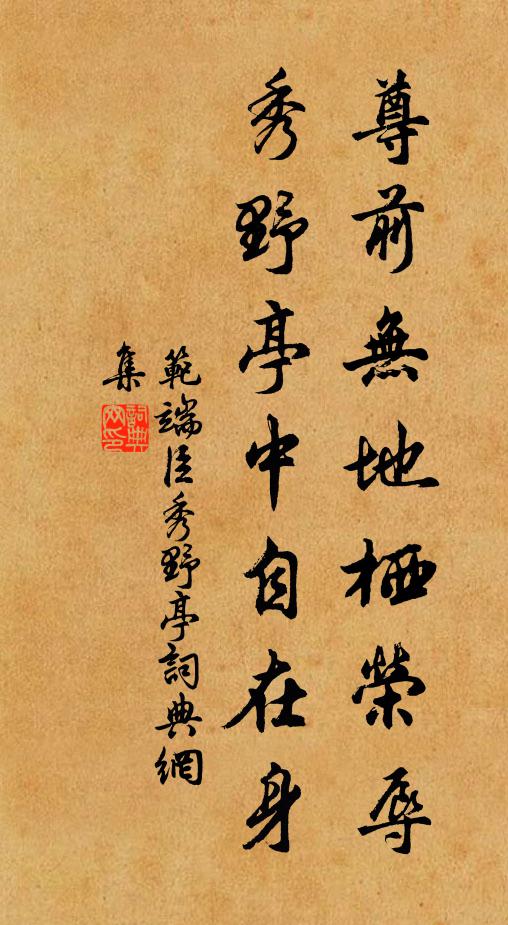 尊前無地栖榮辱
秀野亭中自在身
範端臣秀野亭詞典網
集
詞典网印